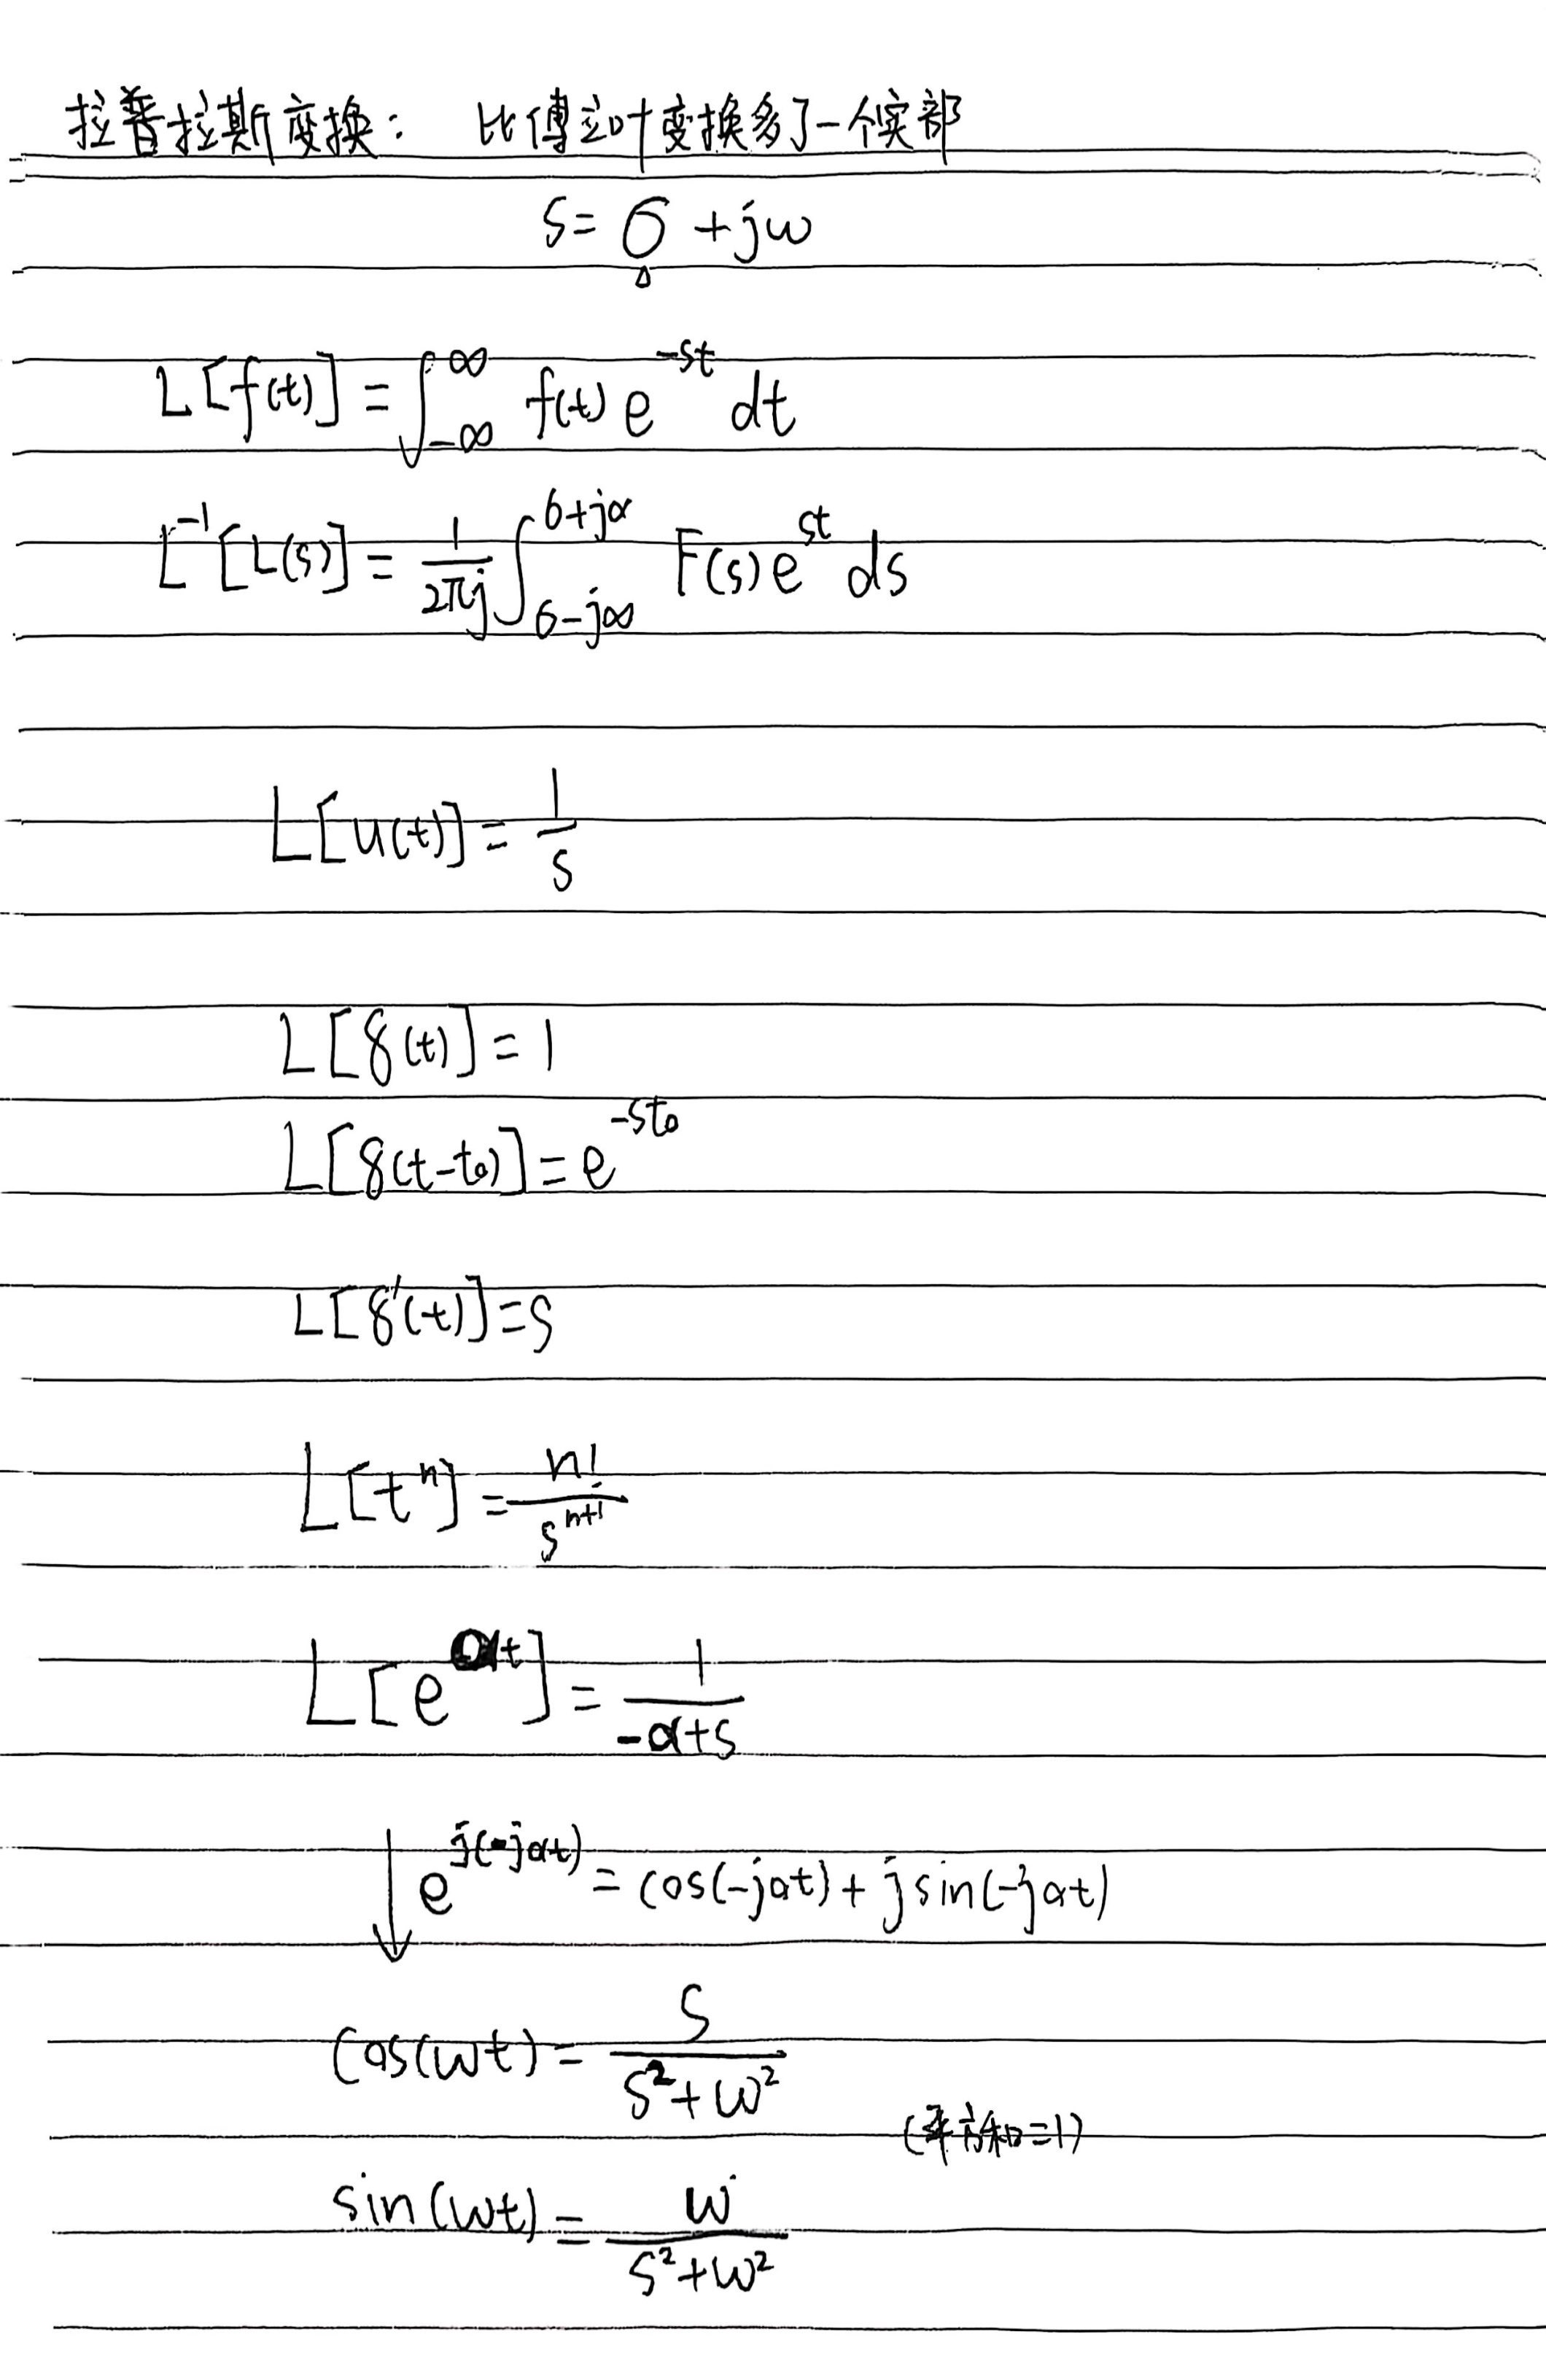 拉普拉斯变换： 比傅立叶变换多了一个实部
s = σ + jω
L[f(t)] = ∫_{-∞}^{∞} f(t) e^{-st} dt
L^{-1}[L(s)] = \frac{1}{2πj} ∫_{σ-j∞}^{σ+j∞} F(s) e^{st} ds
L[u(t)] = \frac{1}{s}
L[δ(t)] = 1
L[δ(t-t₀)] = e^{-st₀}
L[δ'(t)] = s
L[t^n] = \frac{n!}{s^{n+1}}
L[e^{αt}] = \frac{1}{-α+s}
↓ e^{j(-jαt)} = cos(-jαt) + j sin(-jαt)
cos(ωt) = \frac{s}{s²+ω²}
(平方和=1)
sin(ωt) = \frac{ω}{s²+ω²}